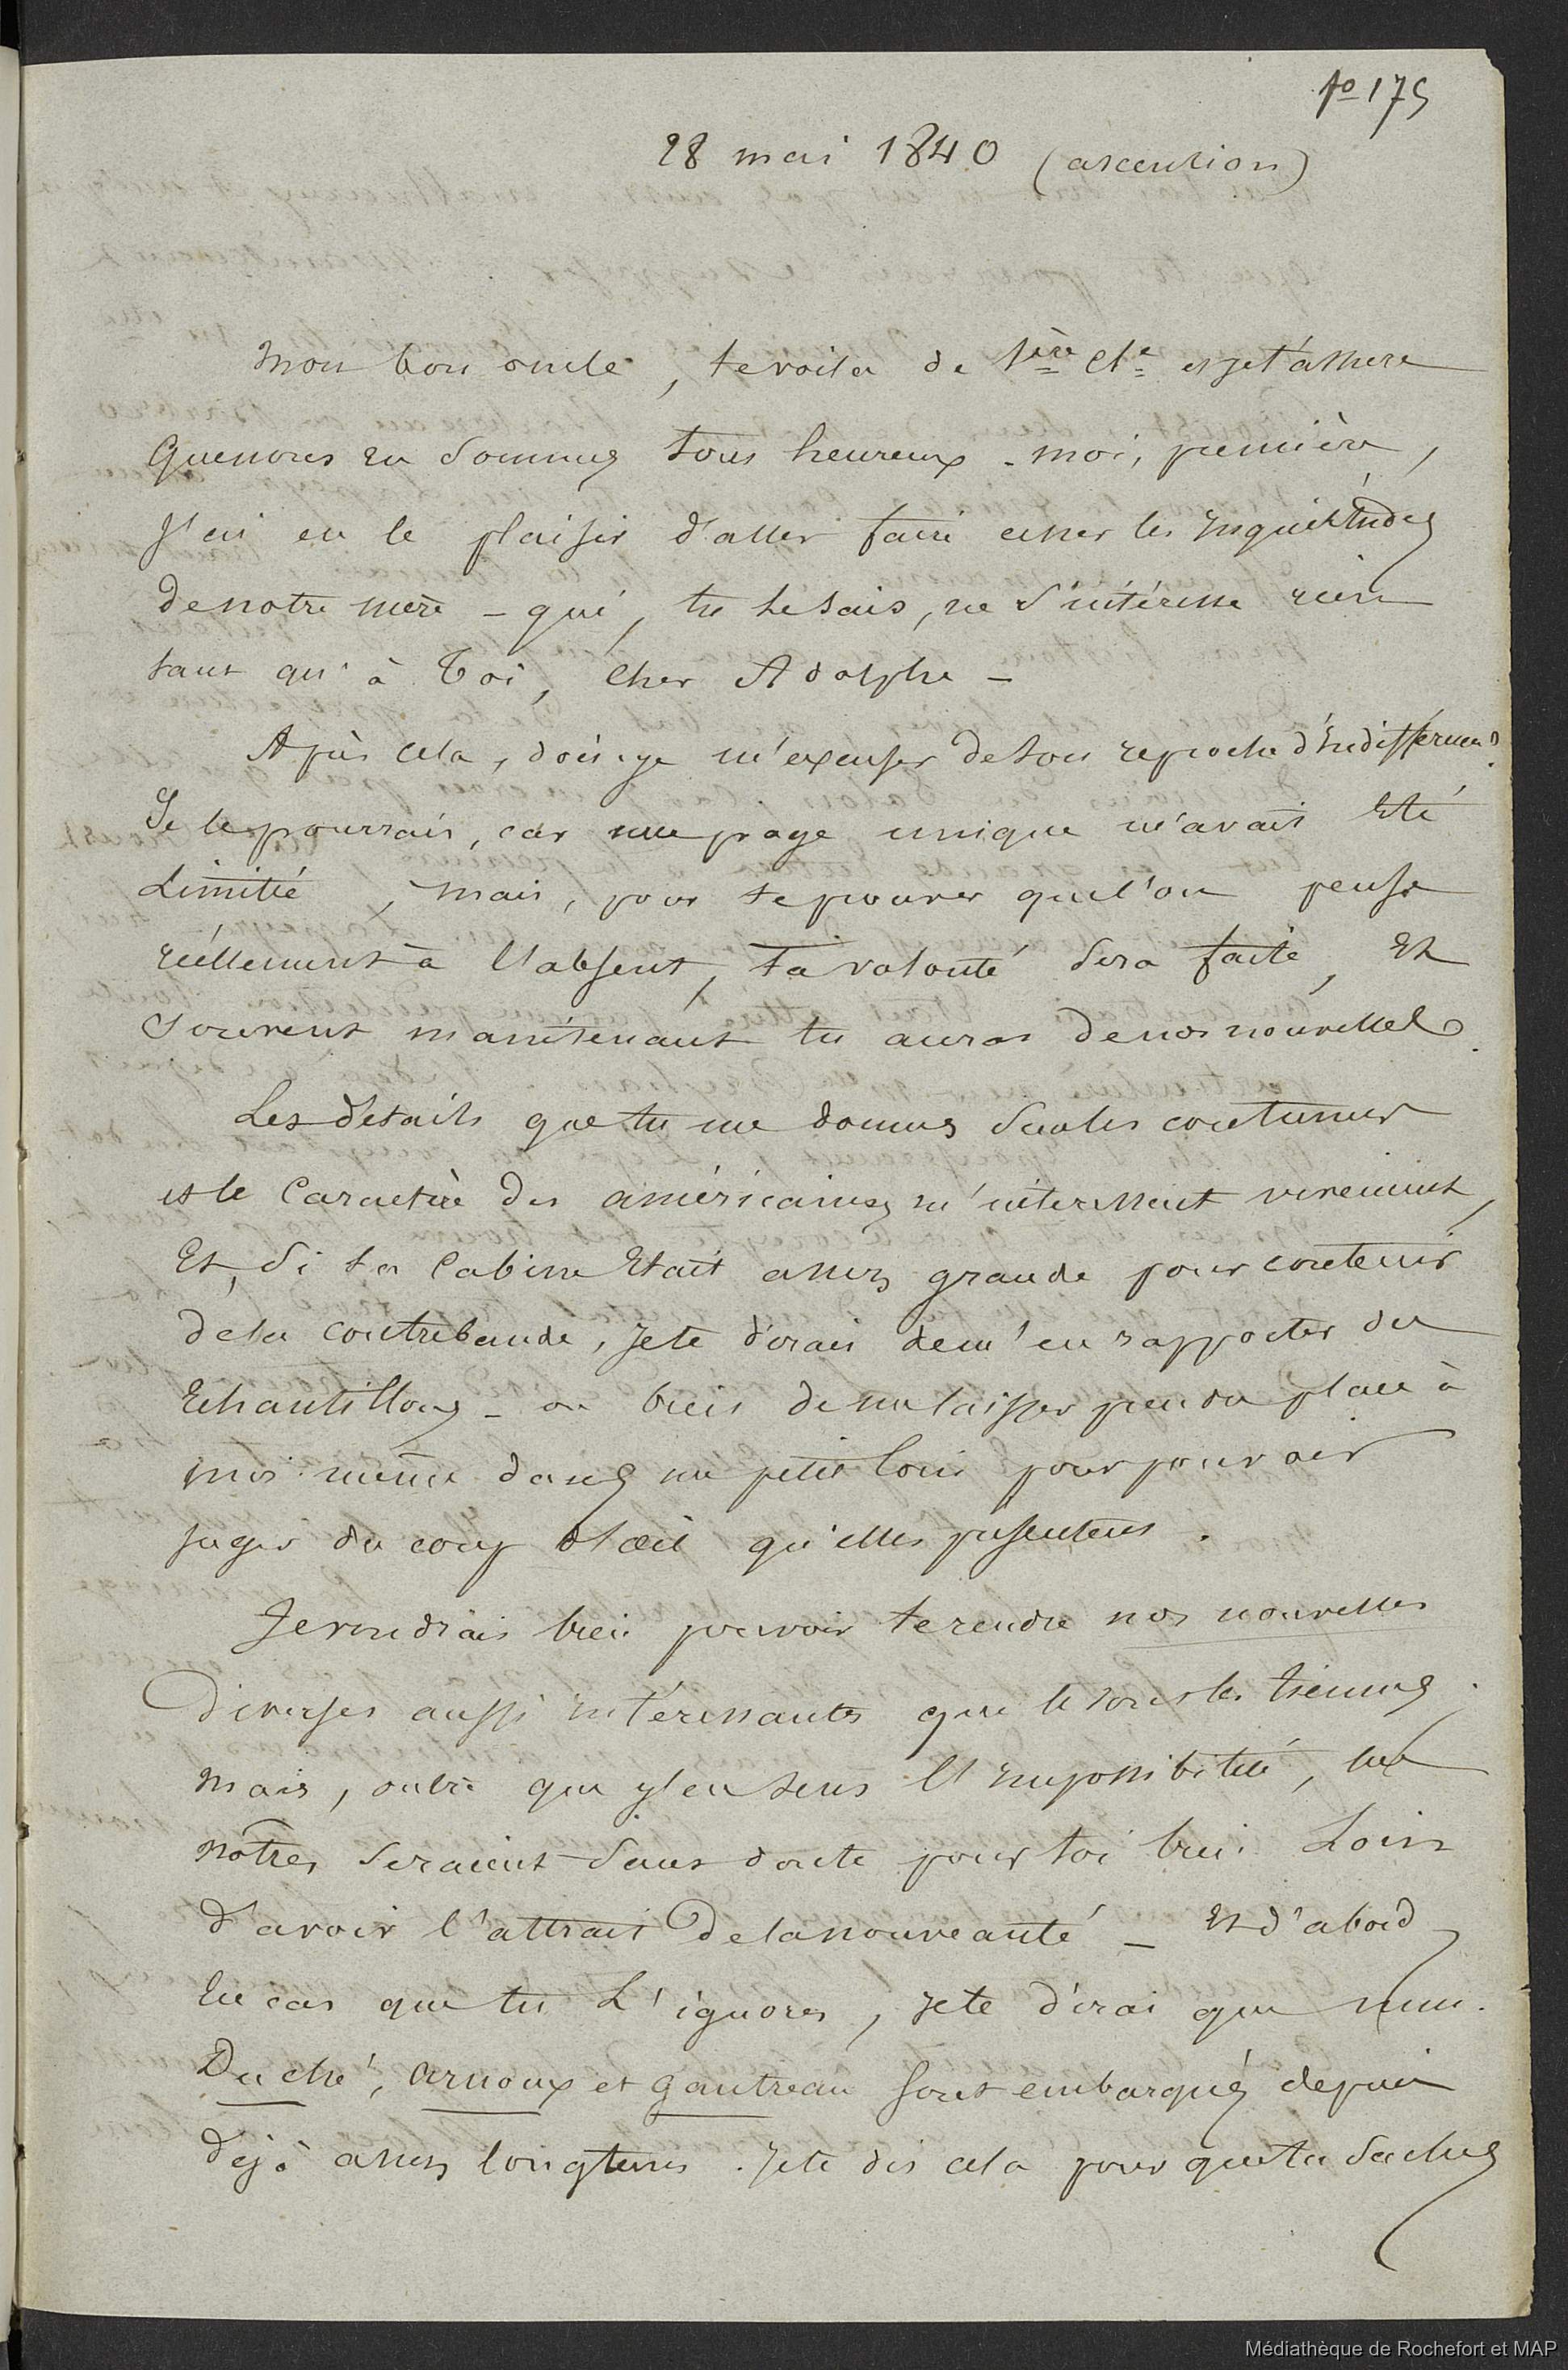 fo 175
28 mai 1840 (ascention)
Mon bon oncle, te voila de 1ère cl.e et je t'assure
que nous en sommes tous heureux - moi, première,
j'ai eu le plaisir d'aller faire cesser les inquiétudes
de notre mère - qui, tu le sais, ne s'intéresse rien
tant qu'à toi, cher Adolphe -
Après cela, dois-je m'excuser de ton reproche d'indifférence?
Je le pourrais, car une page unique m'avait été
limitée, mais, pour te prouver que l'on pense
réellement à l'absent, ta volonté sera faite, et
souvent maintenant tu auras de nos nouvelles.
Les détails que tu me donnes sur les coutumes
et le caractère des américaines m'intéressent vivement,
et, si ta cabine était assez grande pour contenir
de la contrebande, je te dirais de m'en rapporter des
échantillons - ou bien de me laisser prendre place à
moi même dans un petit coin pour pouvoir
juger du coup d'œil qu'elles présentent.
Je voudrais bien pouvoir te rendre nos nouvelles
diverses aussi intéressantes que le sont les tiennes;
mais, outre que j'en sens l'impossibilité, les
nôtres seraient sans doute pour toi bien loin
d'avoir l'attrait de la nouveauté - Et d'abord,
en cas que tu l'ignores, je te dirai que mm.
Duché, arnoux et gautreau sont embarqués depuis
déjà assez longtems. Je te dis cela pour que tu saches
Médiathèque de Rochefort et MAP